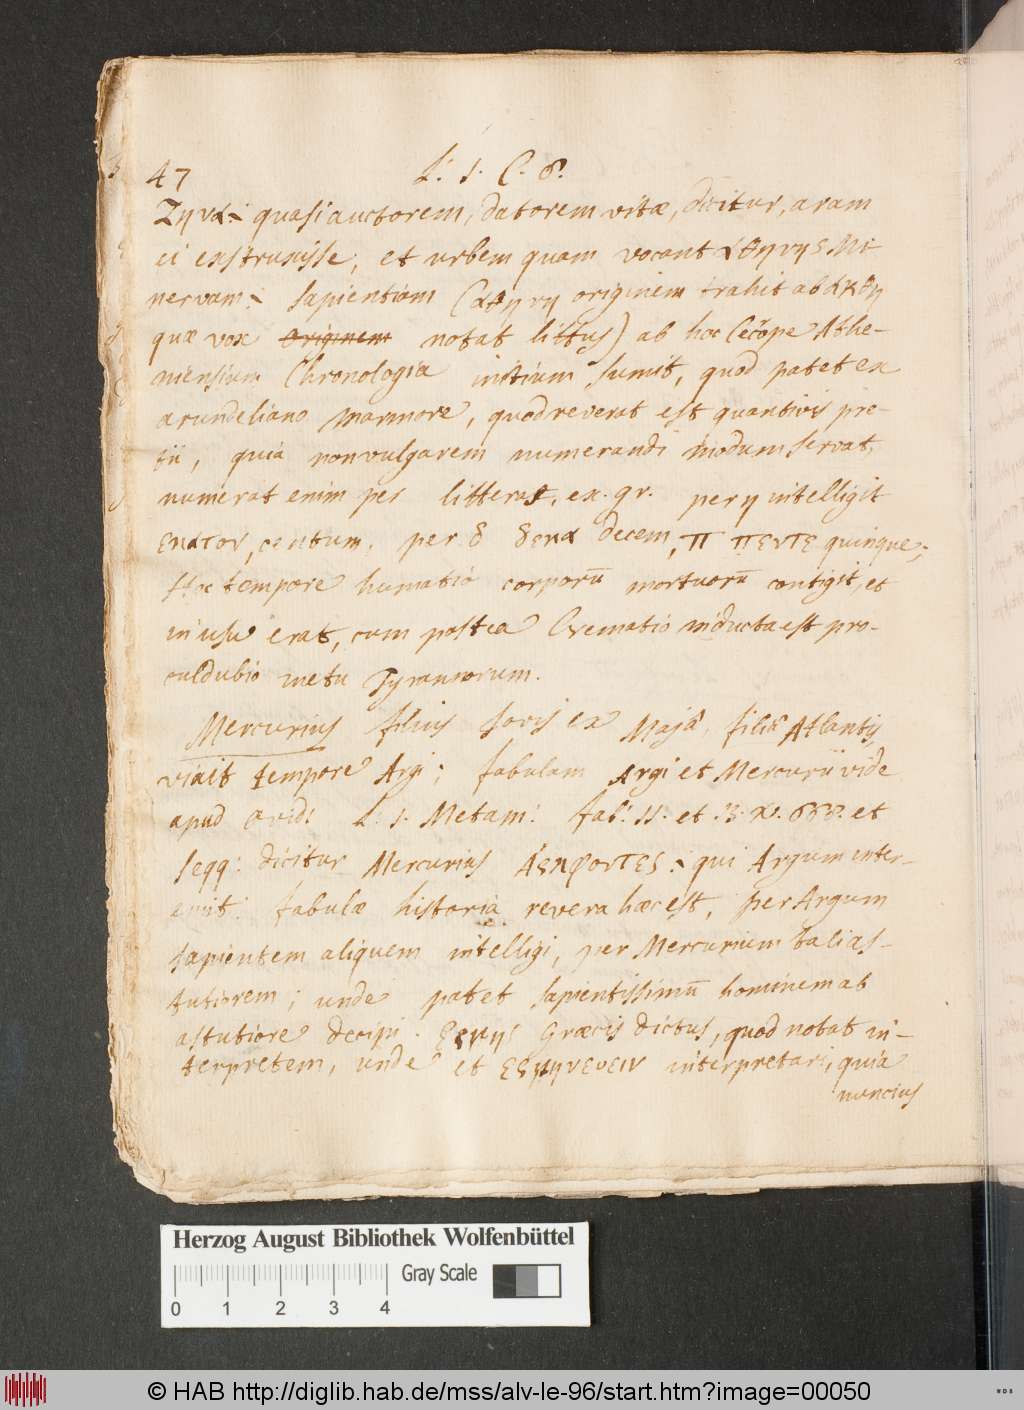 47 L: 1. C. 6.
Ζηνα: quasi auctorem, datorem vitæ, dicitur, aram
ei exstruxisse, et urbem quam vocant αθηνης Mi-
nervam: sapientiam (αθηνη originem trahit ab ακθη
quæ vox originem notat littus) ab hoc Cecrope Athe-
niensium Chronologia initium sumit, quod patet ex
arundeliano marmore, quod revera est quantivis pre-
tii, quia non vulgarem numerandi modum servat,
numerat enim per litteras, ex. gr. per η intelligit
εκατον, centum, per δ δεκα decem, Π πεντε quinque;
Hoc tempore humatio corporū mortuorū contigit, et
in usu erat, cum postea Crematio inducta est pro-
culdubio metu Tyrannorum.
Mercurius filius Jovis ex Majâ, filiâ Atlantis
vixit tempore Argi; fabulam Argi et Mercurii vide
apud Ovid: L: 1. Metam: fab: 11. et 13. V. 668. et
seqq: dicitur Mercurius : qui Argum inter-
emit. fabulæ historia revera hæc est, per Argum
sapientem aliquem intelligi, per Mercurium talias-
tutiorem; unde patet sapientissimū hominem ab
astutiore decipi. Ερμης Græcis dictus, quod notat in-
terpretem, unde et ερμηνευειν interpretari, quia
nuncius
Herzog August Bibliothek Wolfenbüttel
Gray Scale
0 1 2 3 4
© HAB http://diglib.hab.de/mss/alv-le-96/start.htm?image=00050